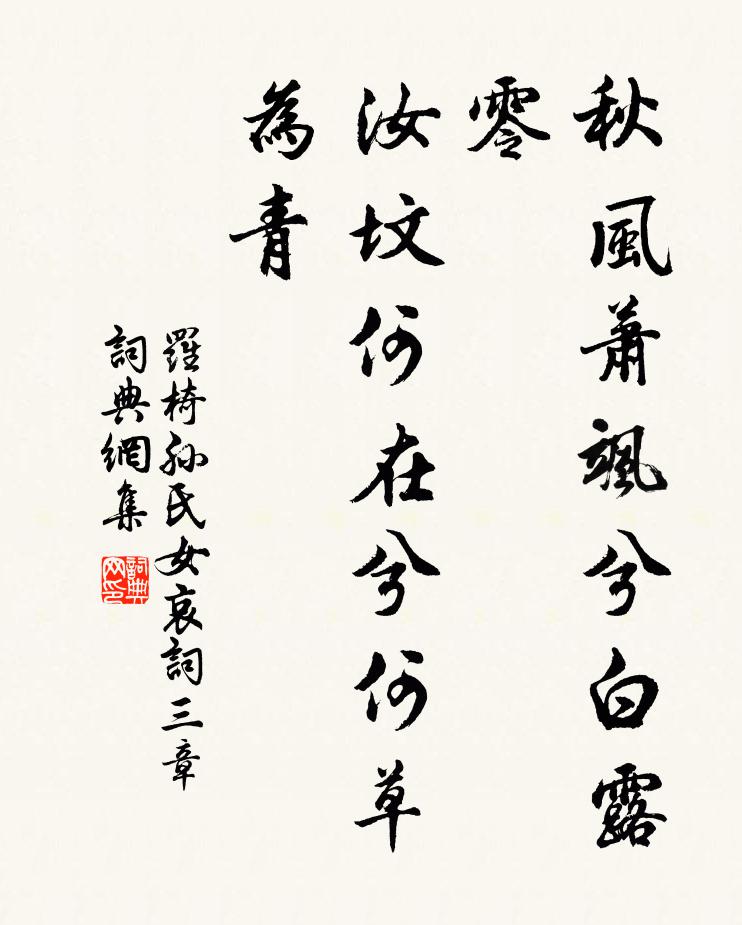 秋風蕭颯兮白露
零
汝墳何在兮何草
為青
羅椅孫氏女哀詞三章
詞典網集
詞典
网印